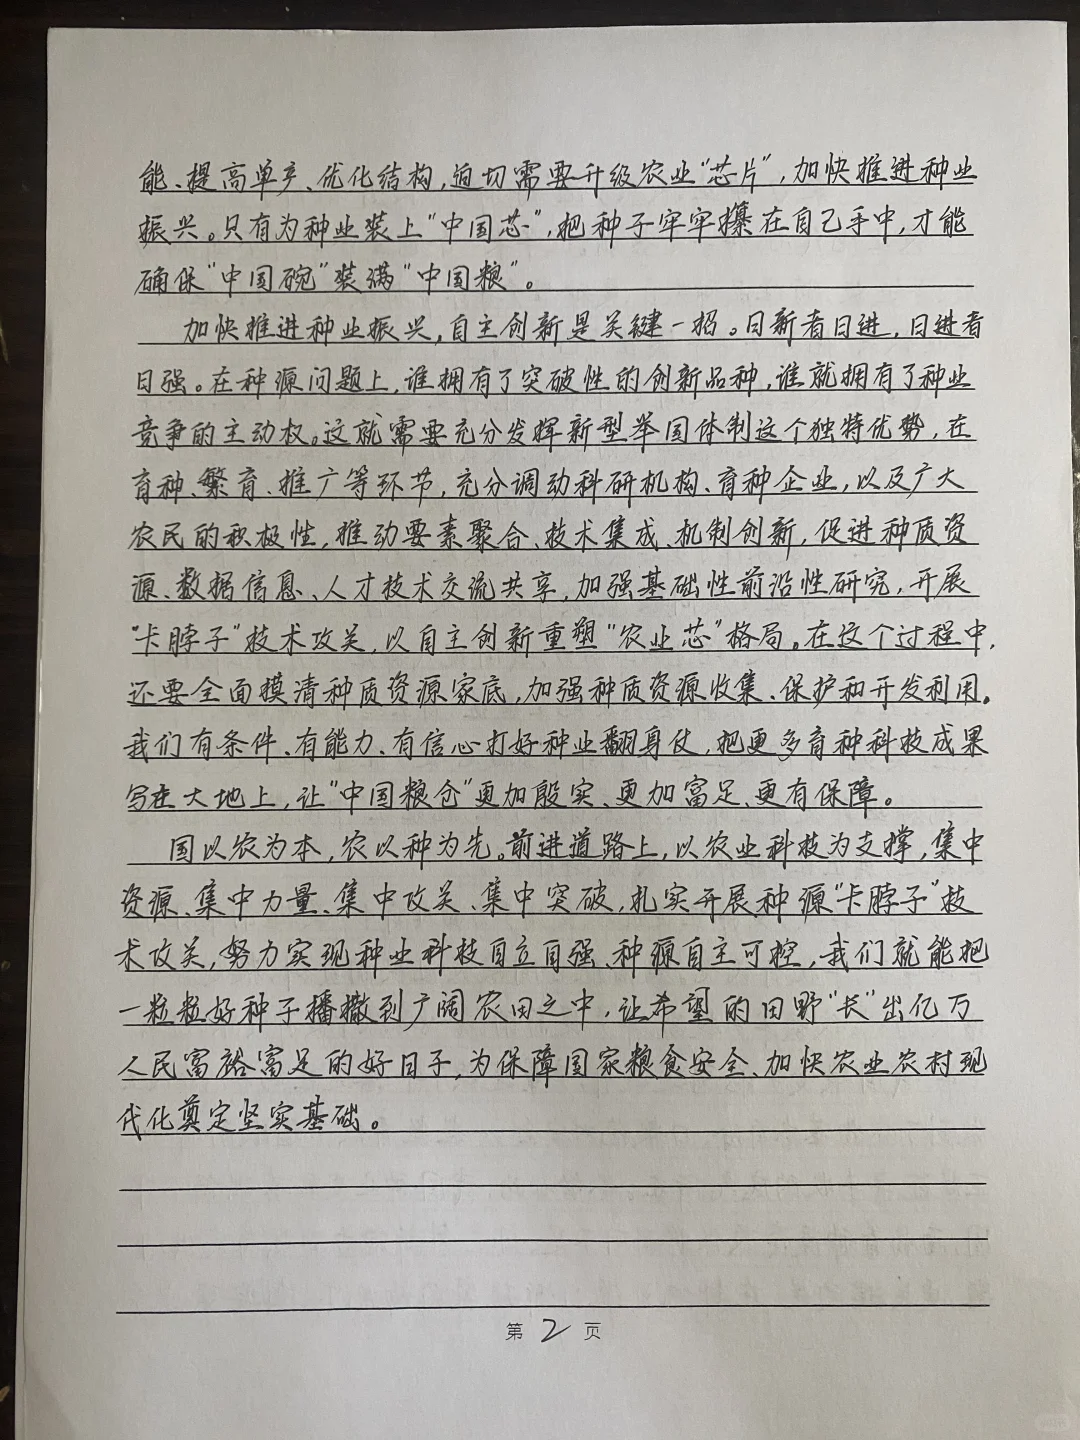 能、提高单产、优化结构,迫切需要升级农业“芯片”,加快推进种业
振兴。只有为种业装上“中国芯”,把种子牢牢攥在自己手中,才能
确保“中国碗”装满“中国粮”。
加快推进种业振兴,自主创新是关键一招。日新者日进,日进者
日强。在种源问题上,谁拥有了突破性的创新品种,谁就拥有了种业
竞争的主动权。这就需要充分发挥新型举国体制这个独特优势,在
育种、繁育、推广等环节,充分调动科研机构、育种企业,以及广大
农民的积极性,推动要素聚合、技术集成、机制创新,促进种质资
源、数据信息、人才技术交流共享,加强基础性前沿性研究,开展
“卡脖子”技术攻关,以自主创新重塑“农业芯”格局。在这个过程中,
还要全面摸清种质资源家底,加强种质资源收集、保护和开发利用。
我们有条件、有能力、有信心打好种业翻身仗,把更多育种科技成果
写在大地上,让“中国粮仓”更加殷实、更加富足、更有保障。
国以农为本,农以种为先。前进道路上,以农业科技为支撑,集中
资源、集中力量、集中攻关、集中突破,扎实开展种源“卡脖子”技
术攻关,努力实现种业科技自立自强、种源自主可控,我们就能把
一粒粒好种子播撒到广阔农田之中,让希望的田野“长”出亿万
人民富裕富足的好日子,为保障国家粮食安全、加快农业农村现
代化奠定坚实基础。
第 2 页